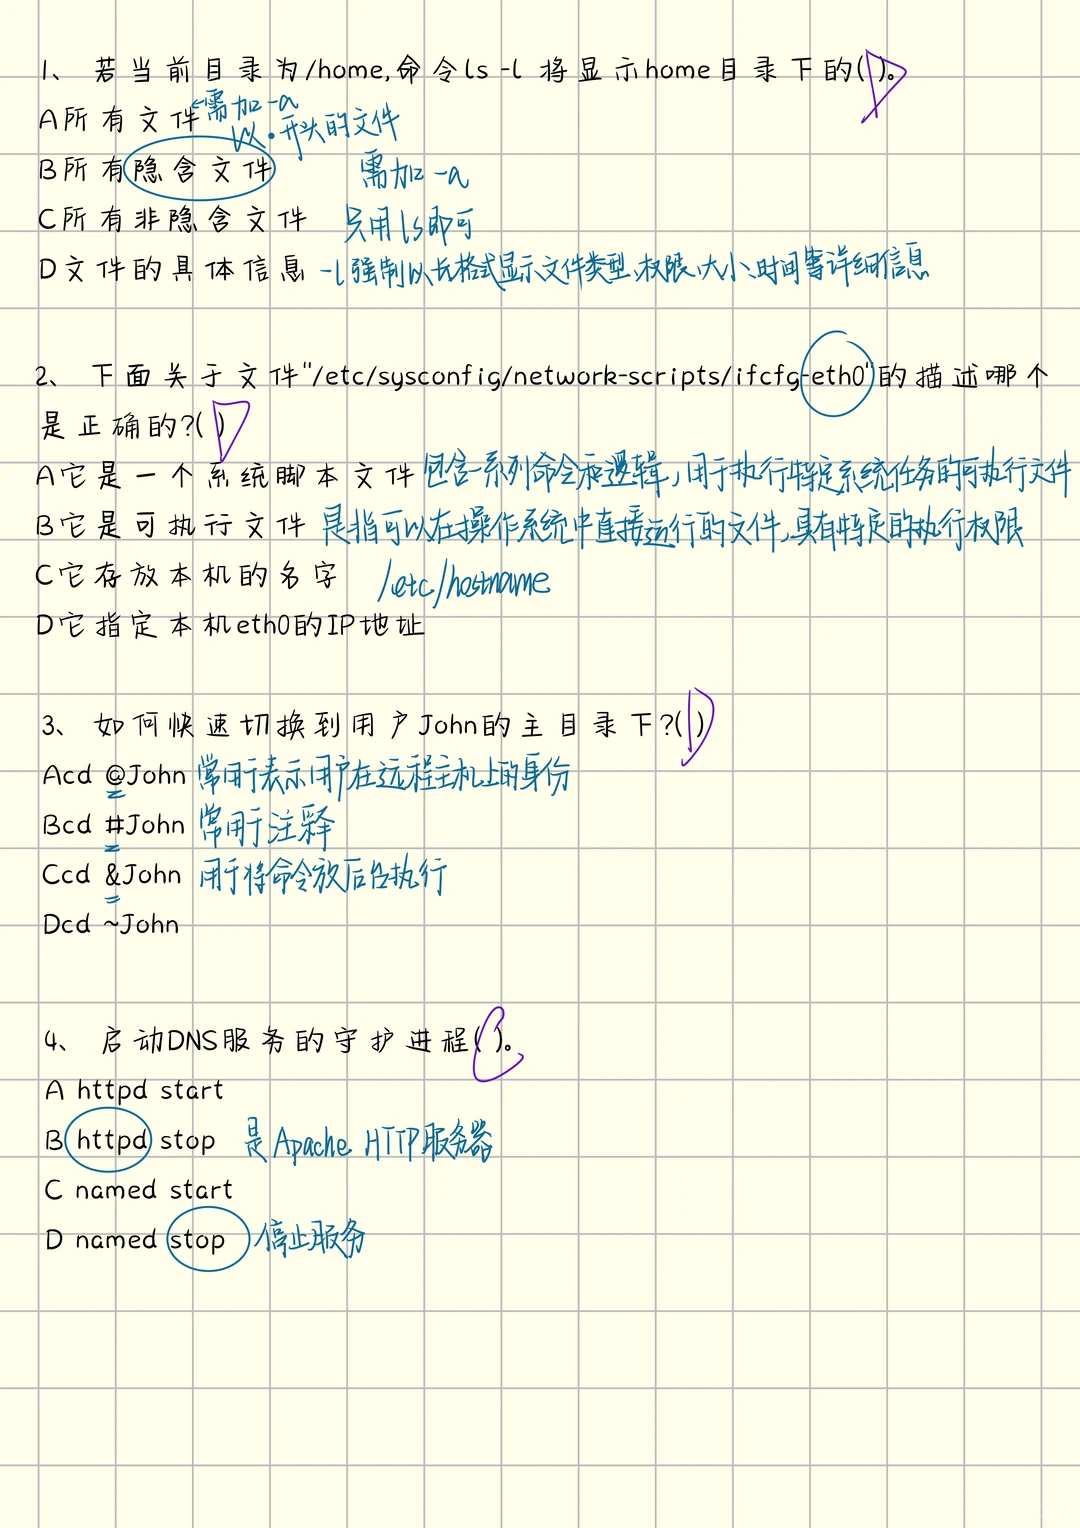 1、若当前目录为/home,命令ls -l 将显示home目录下的(D)。
A所有文件 ←需加-a
以·开头的文件
B所有隐含文件 需加-a
C所有非隐含文件 只用ls即可
D文件的具体信息 -l强制以长格式显示文件类型、权限、大小、时间等详细信息
2、下面关于文件"/etc/sysconfig/network-scripts/ifcfg-eth0"的描述哪个
是正确的?(D)
A它是一个系统脚本文件 包含一系列命令和逻辑,用于执行特定系统任务的可执行文件
B它是可执行文件 是指可以在操作系统中直接运行的文件,具有特定的执行权限
C它存放本机的名字 /etc/hostname
D它指定本机eth0的IP地址
3、如何快速切换到用户John的主目录下?(D)
Acd @John 常用于表示用户在远程主机上的身份
Bcd #John 常用于注释
Ccd &John 用于将命令放后台执行
Dcd ~John
4、启动DNS服务的守护进程(C)。
A httpd start
B httpd stop 是Apache HTTP服务器
C named start
D named stop 停止服务